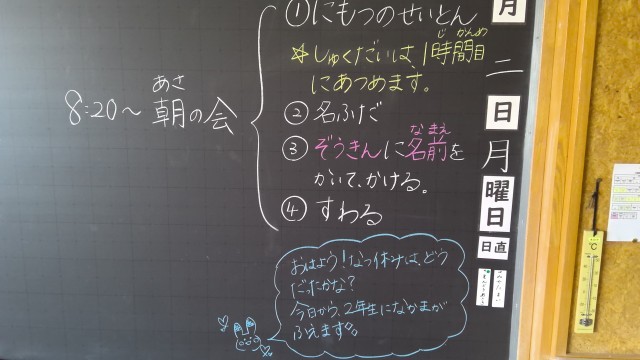 8:20〜 朝の会
あさ
①にもつのせいとん
☆しゅくだいは、1時間目
じ かんめ
にあつめます。
②名ふだ
③ぞうきんに名前を
なまえ
かいて、かける。
④すわる
おはよう!なつ休みは、どう
だったかな?
今日から、2年生になかまが
ふえます。
月
二
日
月
曜
日
日直
℃